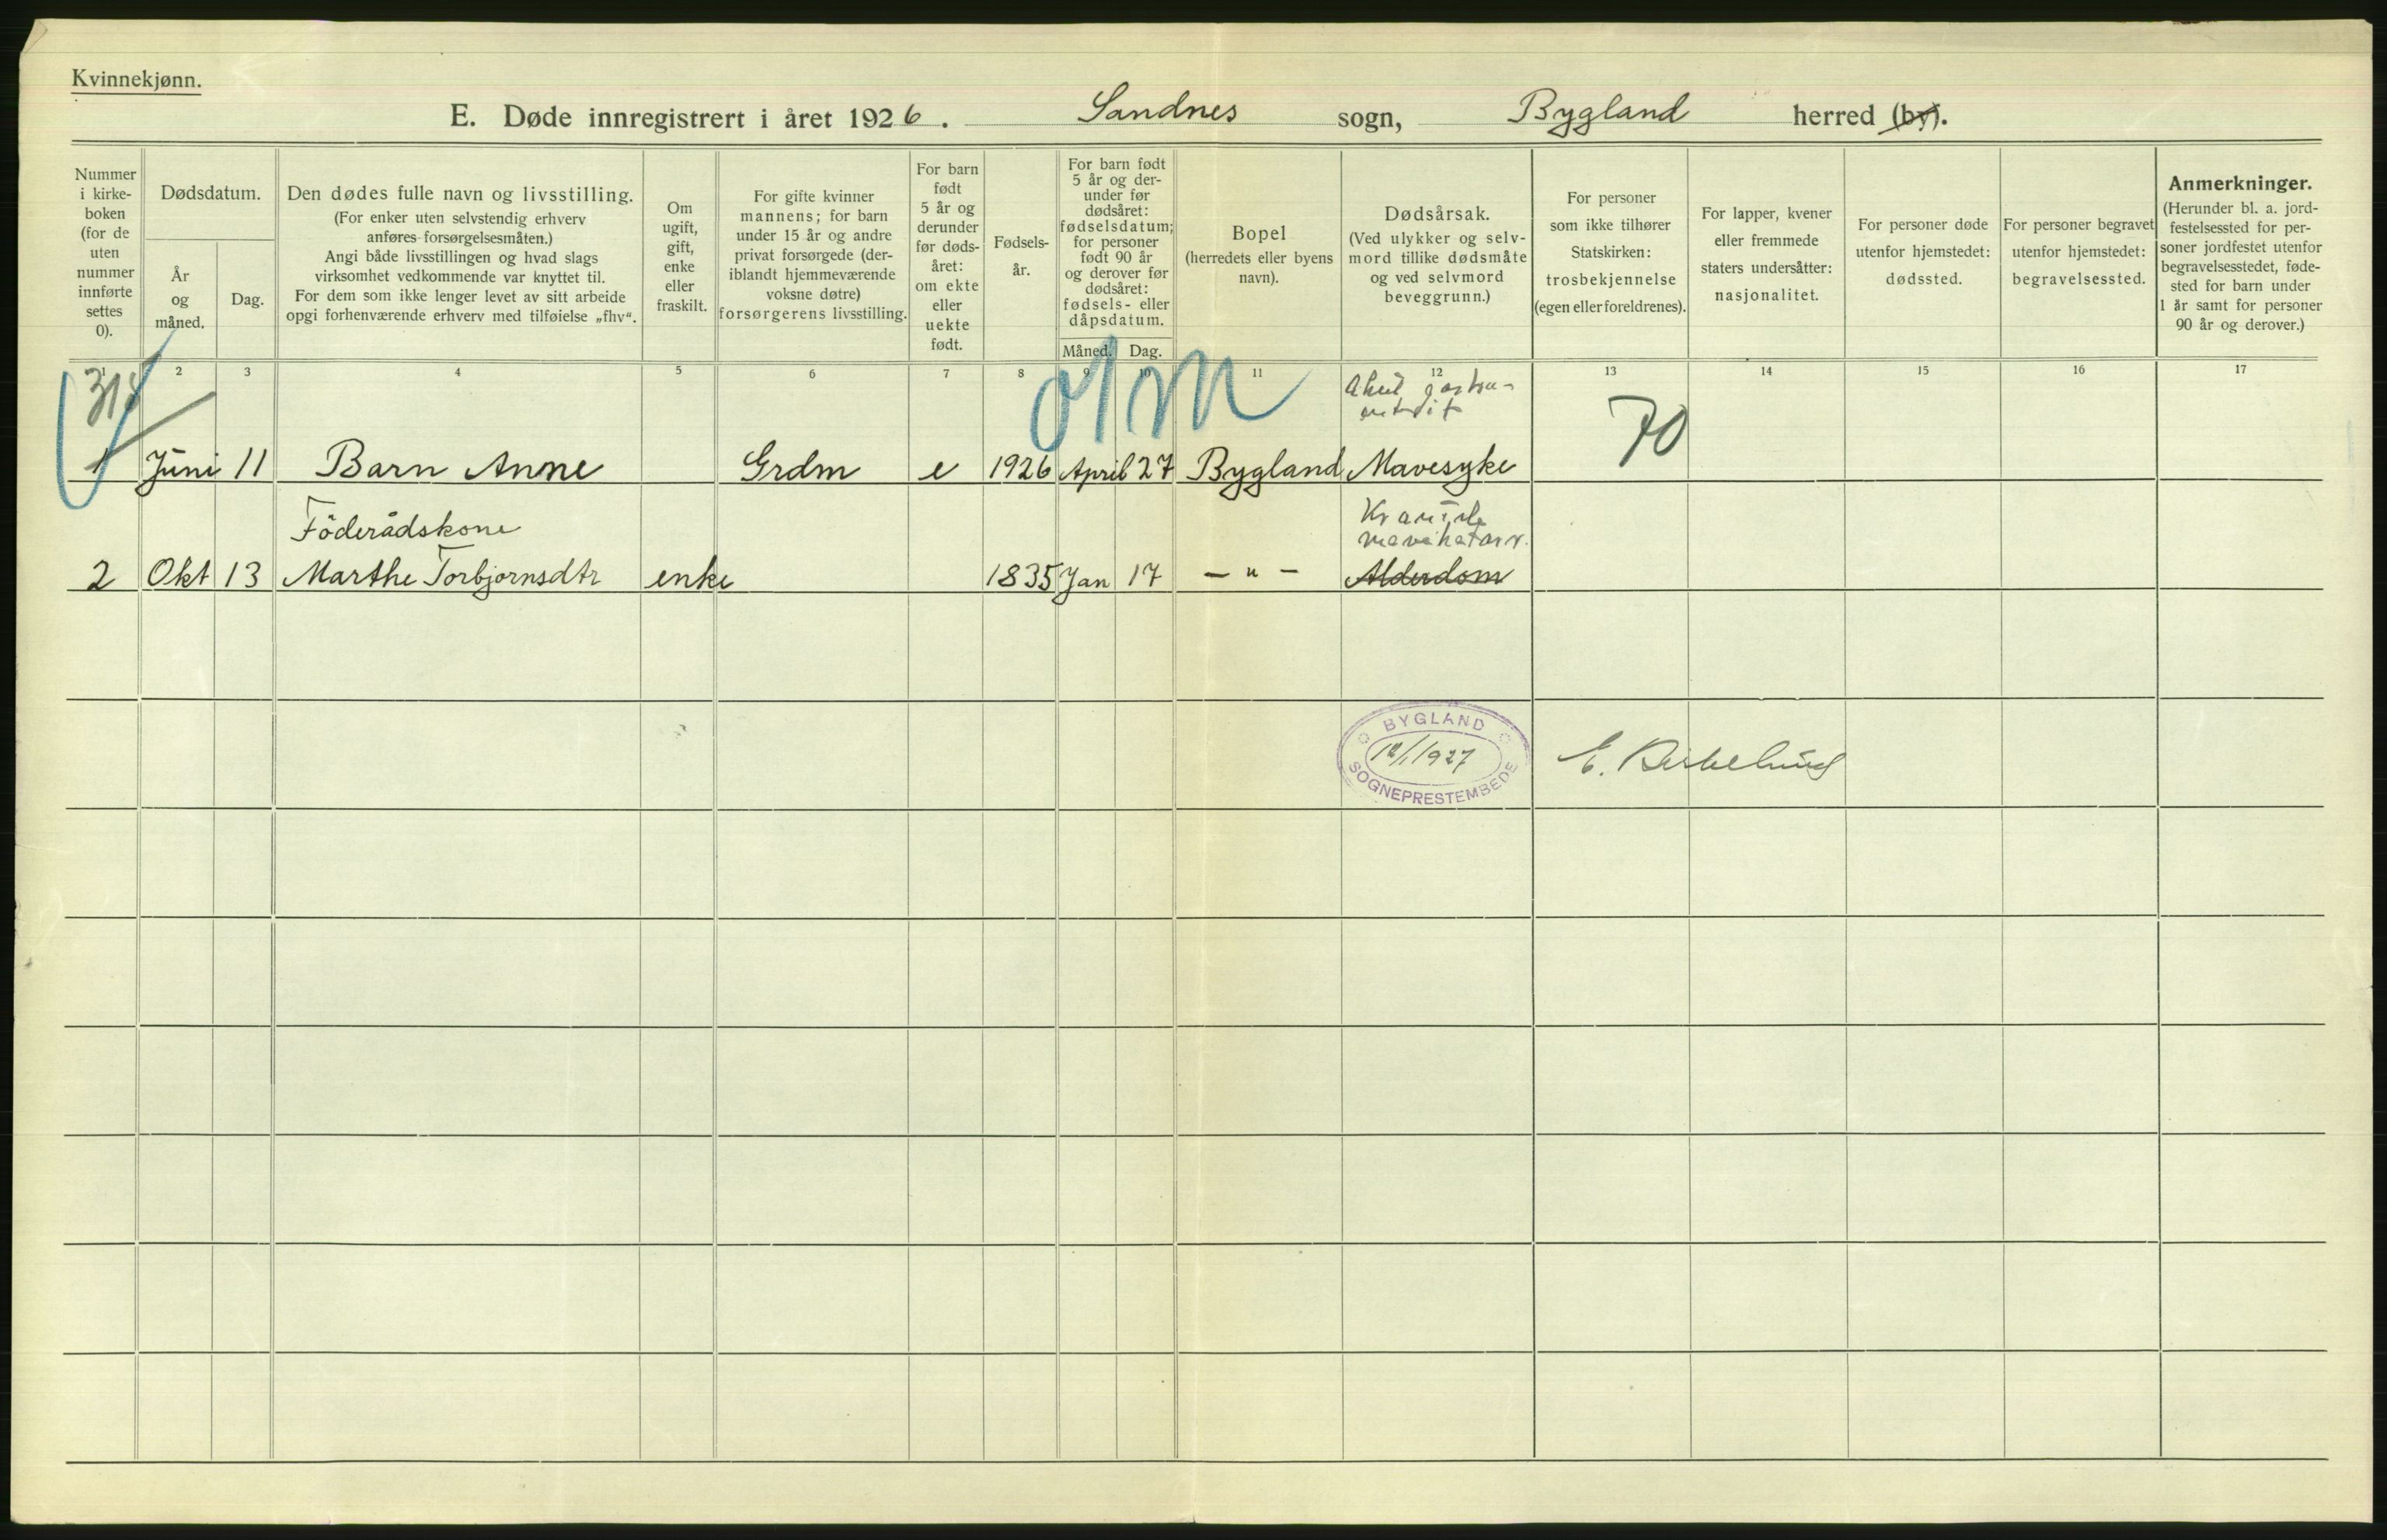 Kvinnekjønn.
E. Døde innregistrert i året 1926. Sandnes sogn, Bygland herred (by).
Nummer
i kirke-
boken
(for de
uten
nummer
innførte
settes
0).
Dødsdatum.
År
og
måned.
Dag.
Den dødes fulle navn og livsstilling.
(For enker uten selvstendig erhverv
anføres forsørgelsesmåten.)
Angi både livsstillingen og hvad slags
virksomhet vedkommende var knyttet til.
For dem som ikke lenger levet av sitt arbeide
opgi forhenværende erhverv med tilføielse „fhv“.
Om
ugift,
gift,
enke
eller
fraskilt.
For gifte kvinner
mannens; for barn
under 15 år og andre
privat forsørgede (der-
iblandt hjemmeværende
voksne døtre)
forsørgerens livsstilling.
For barn
født
5 år og
derunder
før døds-
året:
om ekte
eller
uekte
født.
Fødsels-
år.
For barn født
5 år og der-
under før
dødsåret:
fødselsdatum;
for personer
født 90 år
og derover før
dødsåret:
fødsels- eller
dåpsdatum.
Måned. Dag.
Bopel
(herredets eller byens
navn).
Dødsårsak.
(Ved ulykker og selv-
mord tillike dødsmåte
og ved selvmord
beveggrunn.)
For personer
som ikke tilhører
Statskirken:
trosbekjennelse
(egen eller foreldrenes).
For lapper, kvener
eller fremmede
staters undersåtter:
nasjonalitet.
For personer døde
utenfor hjemstedet:
dødssted.
For personer begravet
utenfor hjemstedet:
begravelsessted.
Anmerkninger.
(Herunder bl. a. jord-
festelsessted for per-
soner jordfestet utenfor
begravelsesstedet, føde-
sted for barn under
1 år samt for personer
90 år og derover.)
1 2 3 4 5 6 7 8 9 10 11 12 13 14 15 16 17
70
1 Juni 11 Barn Anne Grdm e 1926 April 27 Bygland Mavesyke
Föderådskone
mavekatarr.
2 Okt 13 Marthe Torbjornsdtr enke 1835 Jan 17 – " – Alderdom
BYGLAND
1927
SOGNEPRESTEMBEDE
E.